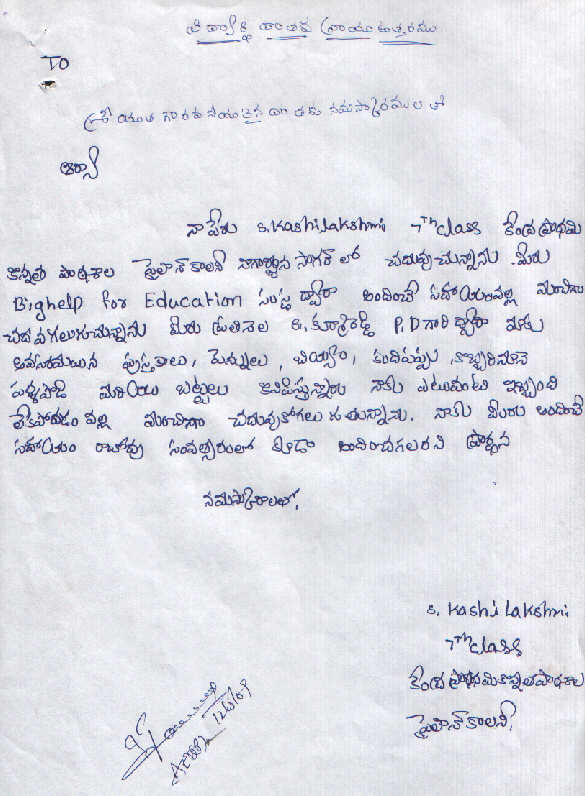 విద్యార్థి దాతకు వ్రాయు ఉత్తరము
TO
శ్రీయుత గౌరవనీయులైన దాతకు నమస్కారములతో
ఆర్యా
నా పేరు S. Kashilakshmi 7th class కేంద్ర ప్రాథమి
కోన్నత పాఠశాల పైలాన్ కాలనీ నాగార్జున సాగర్ లో చదువుచున్నాను. మీరు
Bighelp for Education సంస్థ ద్వారా అందించే సహాయంవల్ల మంచిగా
చదవగలుగుచున్నాను మీరు ప్రతినెల P.D గారి ద్వారా మాకు
అవసరమయిన పుస్తకాలు, పెన్నులు, బియ్యం, కందిపప్పు, కొబ్బరినూనె
పళ్ళపొడి మరియు బట్టలు ఇప్పిస్తున్నారు నాకు ఎటువంటి ఇబ్బంది
లేకపోవడం వల్ల మంచిగా చదువుకోగలుగుతున్నాను. నాకు మీరు అందించే
సహాయం రాబోవు సంవత్సరంలో కూడా అందించగలరని ప్రార్థన
నమస్కారాలతో,
S. Kashi lakshmi
7th class
కేంద్ర ప్రాథమికోన్నత పాఠశాల
పైలాన్ కాలనీ.